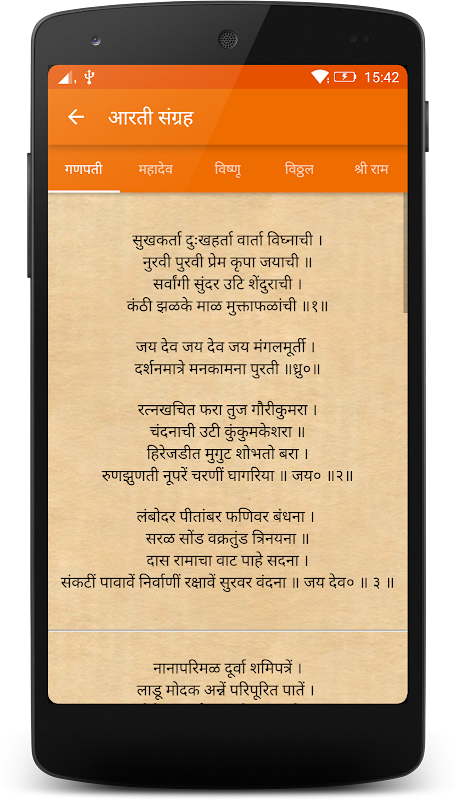 15:42
आरती संग्रह
गणपती महादेव विष्णू विठ्ठल श्री राम
सुखकर्ता दुःखहर्ता वार्ता विघ्नाची ।
नुरवी पुरवी प्रेम कृपा जयाची ॥
सर्वांगी सुंदर उटि शेंदुराची ।
कंठी झळके माळ मुक्ताफळांची ॥१॥
जय देव जय देव जय मंगलमूर्ती ।
दर्शनमात्रे मनकामना पुरती ॥ध्रु०॥
रत्नखचित फरा तुज गौरीकुमरा ।
चंदनाची उटी कुंकुमकेशरा ॥
हिरेजडीत मुगुट शोभतो बरा ।
रुणझुणती नूपरें चरणीं घागरिया ॥ जय० ॥२॥
लंबोदर पीतांबर फणिवर बंधना ।
सरळ सोंड वक्रतुंड त्रिनयना ॥
दास रामाचा वाट पाहे सदना ।
संकटीं पावावें निर्वाणीं रक्षावें सुरवर वंदना ॥ जय देव० ॥ ३ ॥
नानापरिमळ दूर्वा शमिपत्रें ।
लाडू मोदक अन्नें परिपूरित पातें ।